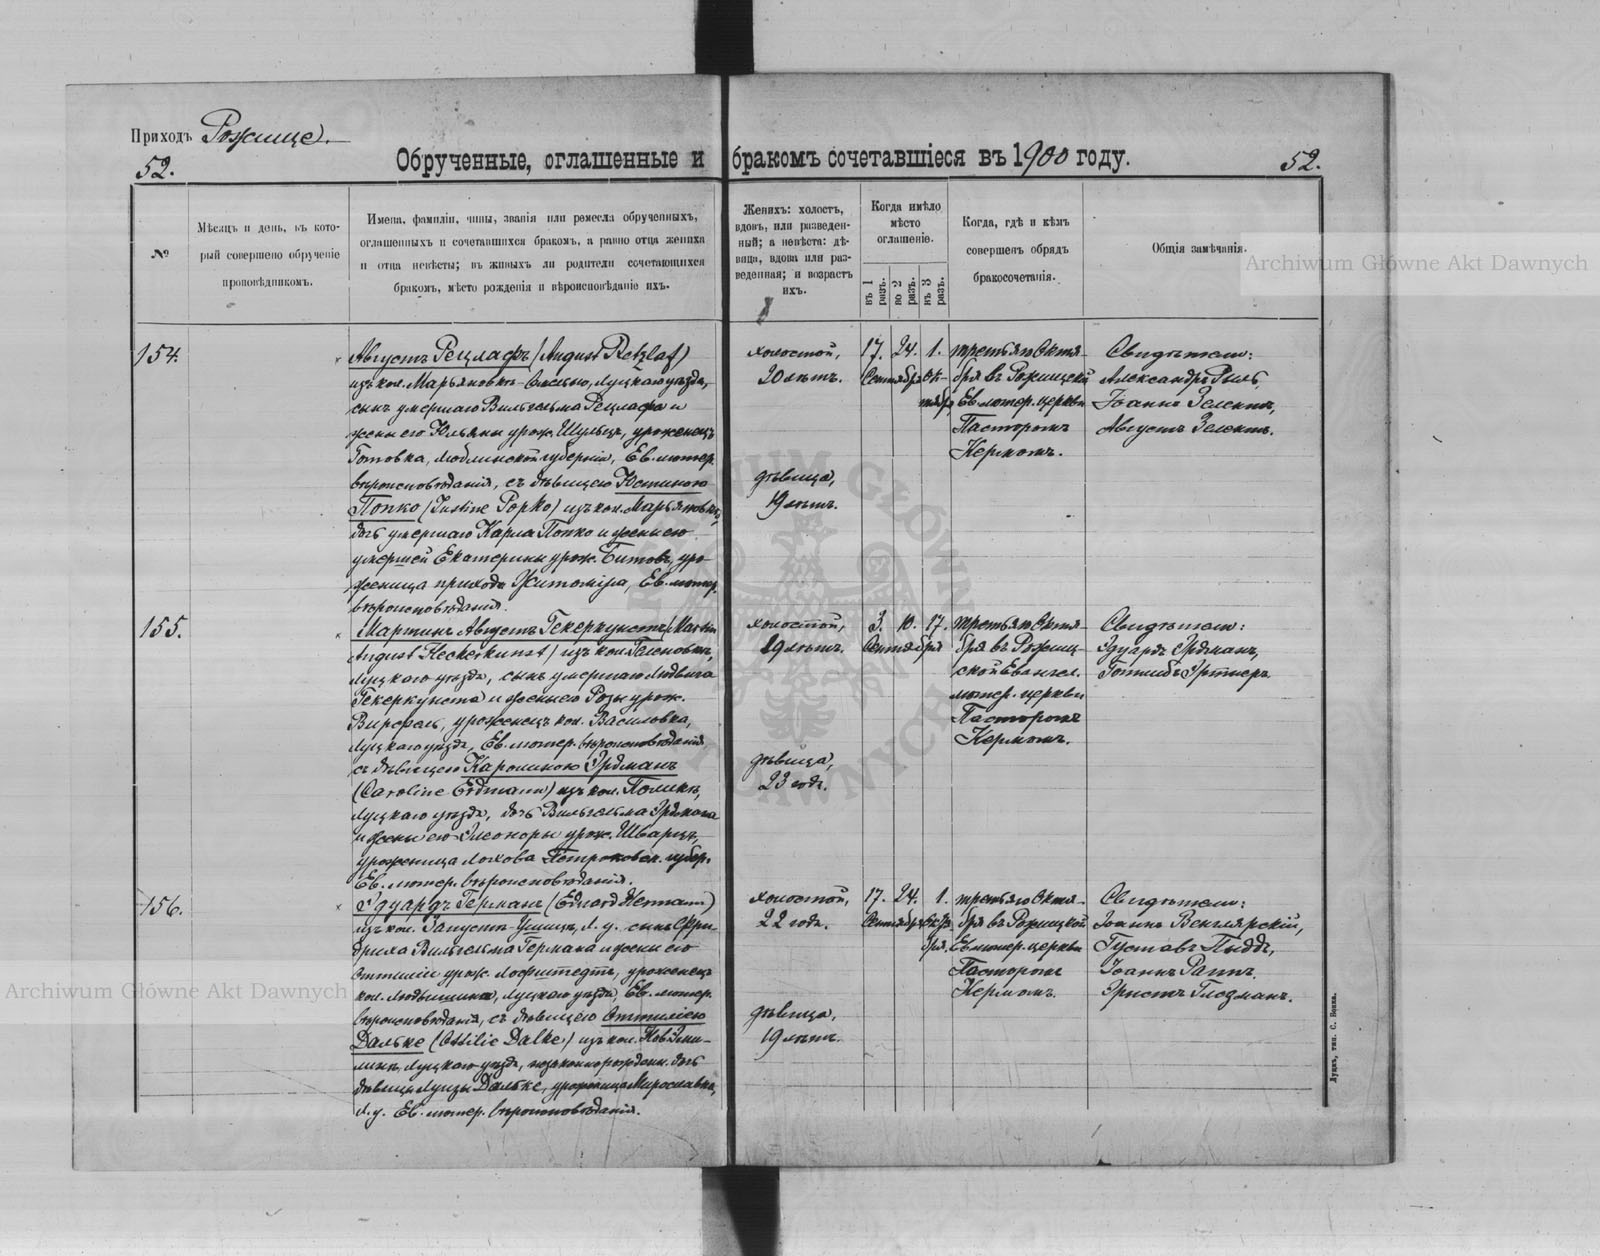 Приходъ Рожище.
52.
Обрученные, оглашенные и бракомъ сочетавшіеся въ 1900 году.
52.
№
Мѣсяцъ и день, въ кото-
рый совершено обрученіе
проповѣдникомъ.
Имена, фамиліи, чины, званія или ремесла обрученныхъ,
оглашенныхъ и сочетавшихся бракомъ, а равно отца жениха
и отца невѣсты; въ живыхъ ли родители сочетающихся
бракомъ, мѣсто рожденія и вѣроисповѣданіе ихъ.
Женихъ: холостъ,
вдовъ, или разведен-
ный; а невѣста: дѣ-
вица, вдова или раз-
веденная; и возрастъ
ихъ.
Когда имѣло
мѣсто
оглашеніе.
въ 1 разъ.
во 2 разъ.
въ 3 разъ.
Когда, гдѣ и кѣмъ
совершенъ обрядъ
бракосочетанія.
Общія замѣчанія.
Archiwum Główne Akt Dawnych
154.
Августъ Рецлафъ (August Retzlaf)
изъ кол. Марьяновка Луцкаго уѣзда,
сынъ умершаго Вильгельма Рецлафа и
жены его Юльяны урож. Шульцъ, уроженецъ
Люблинской губерніи, Ев. лютер.
вѣроисповѣданія, съ дѣвицею Юстиною
Попко (Justine Popko) изъ кол. Марьяновка,
дочь умершаго Карла Попко и жены его
умершей Екатерины урож. Битовъ, уро-
женица прихода Житоміра, Ев. лютер.
вѣроисповѣданія.
холостой,
20 лѣтъ.
дѣвица,
19 лѣтъ.
17. 24. 1.
Сентября Ок-
тября
третьяго Октя-
бря въ Рожищской
Ев. лютер. церкви
Пасторомъ
Кермомъ.
Свидѣтели:
Александръ Рыль,
Іоаннъ Зелентъ,
Августъ Зелентъ.
155.
Мартинъ Августъ Гекеркунстъ (Martin
August Heckerkunst) изъ кол. Геленовка,
Луцкаго уѣзда, сынъ умершаго Людвига
Гекеркунста и жены его Розы урож.
уроженецъ кол. Василовка,
Луцкаго уѣзда, Ев. лютер. вѣроисповѣданія
съ дѣвицею Каролиною Эрдманъ
(Caroline Erdmann) изъ кол.
Луцкаго уѣзда, дочь Вильгельма Эрдмана
и жены его Элеоноры урож. Шварцъ,
уроженица Петроковск. губер.
Ев. лютер. вѣроисповѣданія.
холостой,
19 лѣтъ.
дѣвица,
23 года.
3. 10. 17.
Сентября
третьяго Октя-
бря въ Рожищ-
ской Евангел.
лютер. церкви
Пасторомъ
Кермомъ.
Свидѣтели:
Эдуардъ Эрдманъ,
Готлибъ
156.
Эдуардъ Германъ (Eduard Hermann)
изъ кол. Запустъ-Ушицкъ, Л. у. сынъ Фри-
дриха Вильгельма Германа и жены его
Оттиліи урож. уроженецъ
кол. Луцкаго уѣзда, Ев. лютер.
вѣроисповѣданія, съ дѣвицею Оттиліею
Дальке (Ottilie Dalke) изъ кол.
Луцкаго уѣзда, незаконнорожденн. дочь
дѣвицы Луизы Дальке, уроженица Мирославка,
Л. у. Ев. лютер. вѣроисповѣданія.
холостой,
22 года.
дѣвица,
19 лѣтъ.
17. 24. 1.
Сентября Октя-
бря.
третьяго Октя-
бря въ Рожищской
Ев. лютер. церкви
Пасторомъ
Кермомъ.
Свидѣтели:
Іоаннъ Венглярскій,
Густавъ
Іоаннъ Раттъ,
Эрнстъ Глезманъ.
Archiwum Główne Akt Dawnych
Луцкъ, тип. С. Бонка.